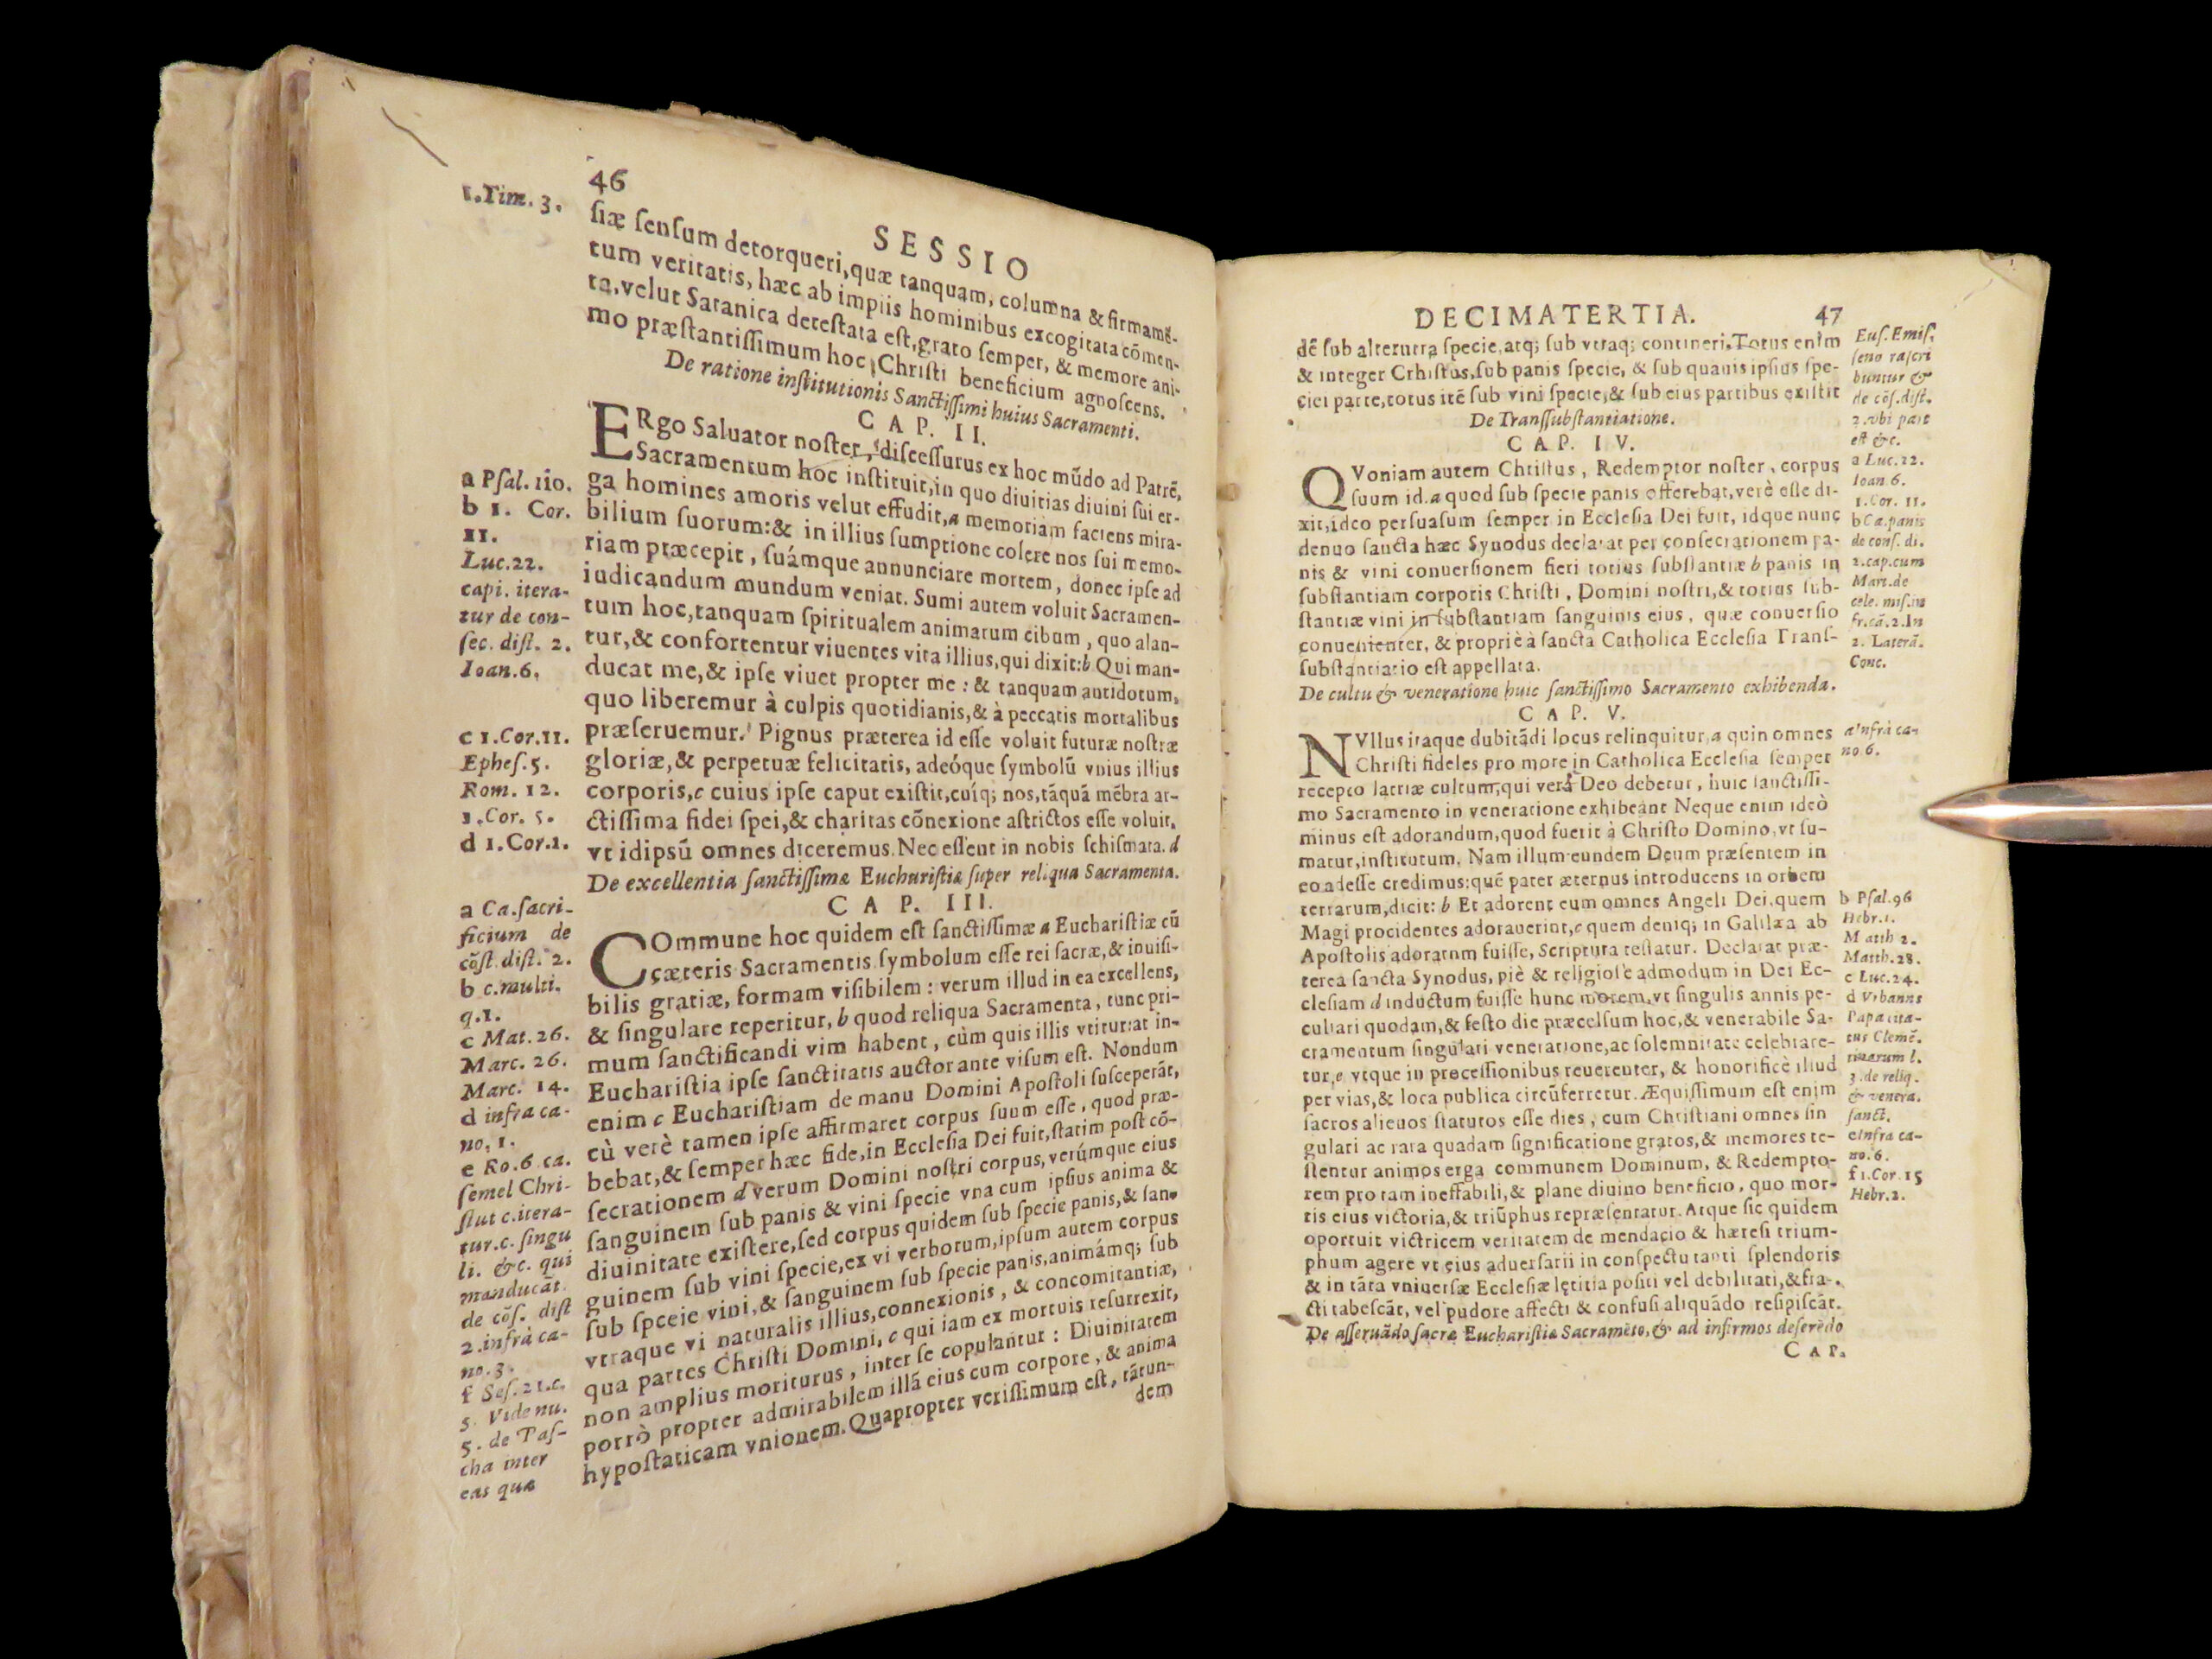 46
SESSIO
1.Tim. 3.
ſiæ ſenſum detorqueri,quæ tanquam, columna & firmamẽ-
tum veritatis, hæc ab impiis hominibus excogitata cõmen-
ta,velut Satanica deteſtata eſt,grato ſemper, & memore ani-
mo præſtantiſſimum hoc Chriſti beneficium agnoſcens.
De ratione inſtitutionis Sanctiſſimi huius Sacramenti.
CAP. II.
ERgo Saluator noſter, diſceſſurus ex hoc mũdo ad Patrẽ,
Sacramentum hoc inſtituit,in quo diuitias diuini ſui er-
ga homines amoris velut effudit,a memoriam faciens mira-
bilium ſuorum:& in illius ſumptione colere nos ſui memo-
riam præcepit, ſuámque annunciare mortem, donec ipſe ad
iudicandum mundum veniat. Sumi autem voluit Sacramen-
tum hoc,tanquam ſpiritualem animarum cibum, quo alan-
tur,& confortentur viuentes vita illius,qui dixit:b Qui man-
ducat me,& ipſe viuet propter me: & tanquam antidotum,
quo liberemur à culpis quotidianis,& à peccatis mortalibus
præſeruemur. Pignus præterea id eſſe voluit futuræ noſtræ
gloriæ,& perpetuæ felicitatis, adeóque ſymbolũ vnius illius
corporis,c cuius ipſe caput exiſtit,cuíq; nos,tãquã mẽbra ar-
ctiſſima fidei ſpei,& charitas cõnexione aſtrictos eſſe voluit,
vt idipsũ omnes diceremus. Nec eſſent in nobis ſchiſmata. d
De excellentia ſanctiſſimæ Euchariſtiæ ſuper reliqua Sacramenta.
CAP. III.
COmmune hoc quidem eſt ſanctiſſimæ a Euchariſtiæ cũ
cæteris Sacramentis ſymbolum eſſe rei ſacræ,& inuiſi-
bilis gratiæ, formam viſibilem: verum illud in ea excellens,
& ſingulare reperitur, b quod reliqua Sacramenta, tunc pri-
mum ſanctificandi vim habent, cùm quis illis vtitur:at in-
Euchariſtia ipſe ſanctitatis auctor ante viſum eſt. Nondum
enim c Euchariſtiam de manu Domini Apoſtoli ſuſceperãt,
cù verè tamen ipſe affirmaret corpus ſuum eſſe, quod præ-
bebat,& ſemper hæc fide,in Eccleſia Dei fuit,ſtatim poſt cõ-
ſecrationem d verum Domini noſtri corpus,verúmque eius
ſanguinem ſub panis & vini ſpecie vna cum ipſius anima &
diuinitate exiſtere,ſed corpus quidem ſub ſpecie panis,& ſan-
guinem ſub vini ſpecie,ex vi verborum,ipſum autem corpus
ſub ſpceie vini,& ſanguinem ſub ſpecie panis,animámq; ſub
vtraque vi naturalis illius,connexionis, & concomitantiæ,
qua partes Chriſti Domini, e qui iam ex mortuis reſurrexit,
non amplius moriturus, inter ſe copulantur: Diuinitatem
porrò propter admirabilem illã eius cum corpore, & anima
hypoſtaticam vnionem. Quapropter veriſſimum eſt, tãtun-
dem
a Pſal. 110.
b 1. Cor.
11.
Luc.22.
capi. itera-
tur de con-
ſec. diſt. 2.
Ioan.6.
c 1.Cor.11.
Epheſ.5.
Rom. 12.
1.Cor. 5.
d 1.Cor.1.
a Ca.ſacri-
ficium de
cõſt diſt. 2.
b c.multi.
q.1.
c Mat.26.
Marc. 26.
Marc. 14.
d infra ca-
no. 1.
e Ro.6 ca.
ſemel Chri-
ſtut c.itera-
tur.c. ſingu
li. &c. qui
manducãt.
de cõſ. diſt
2.infrà ca-
no.3.
f Seſ.21.c.
5. Vide nu.
5. de Paſ-
cha inter
eas quæ
DECIMATERTIA. 47
dẽ ſub alterutra ſpecie,atq; ſub vtraq; contineri.Totus enim
& integer Crhiſtus,ſub panis ſpecie, & ſub quauis ipſius ſpe-
ciei parte,totus itẽ ſub vini ſpecie,& ſub eius partibus exiſtit
De Tranſſubſtantiatione.
CAP. IV.
QVoniam autem Chriſtus, Redemptor noſter, corpus
ſuum id.a quod ſub ſpecie panis offerebat,verè eſſe di-
xit,ideo perſuaſum ſemper in Eccleſia Dei fuit, idque nunc
denuo ſancta hæc Synodus declarat per conſecrationem pa-
nis & vini conuerſionem fieri totius ſubſtantiæ b panis in
ſubſtantiam corporis Chriſti, Domini noſtri,& totius ſub-
ſtantiæ vini in ſubſtantiam ſanguinis eius, quæ conuerſio
conuenienter, & propriè à ſancta Catholica Eccleſia Tranſ-
ſubſtantiatio eſt appellata.
De cultu & veneratione huic ſanctiſſimo Sacramento exhibenda.
CAP. V.
NVllus itaque dubitãdi locus relinquitur,a quin omnes
Chriſti fideles pro more in Catholica Eccleſia ſemper
recepto latriæ cultum,qui vera Deo debetur, huic ſanctiſſi-
mo Sacramento in veneratione exhibeant Neque enim ideò
minus eſt adorandum,quod fuerit à Chriſto Domino,vt ſu-
matur,inſtitutum. Nam illum eundem Deum præſentem in
eo adeſſe credimus:quẽ pater æternus introducens in orbem
terrarum,dicit: b Et adorent eum omnes Angeli Dei.quem
Magi procidentes adorauerint,c quem deniq; in Galilæa ab
Apoſtolis adoratnm fuiſſe, Scriptura teſtatur. Declarat præ-
terea ſancta Synodus, piè & religioſe admodum in Dei Ec-
cleſiam d inductum fuiſſe hunc morem,vt ſingulis annis pe-
culiari quodam,& feſto die præcelſum hoc,& venerabile Sa-
cramentum ſingulari veneratione,ac ſolemnitate celebrare-
tur,e vtque in proceſſionibus reuerenter, & honorificè illud
per vias,& loca publica circũferretur. Æquiſſimum eſt enim
ſacros alienos ſtatutos eſſe dies, cum Chriſtiani omnes ſin
gulari ac rara quadam ſignificatione gratos,& memores te-
ſtentur animos erga communem Dominum, & Redempto-
rem pro tam ineffabili,& plane diuino beneficio, quo mor-
tis eius victoria,& triũphus repræſentatur. Atque ſic quidem
oportuit victricem veritatem de mendacio & hæreſi trium-
phum agere vt eius aduerſarii in conſpectu tanti ſplendoris
& in tãta vniuerſæ Eccleſiæ lętitia poſiti vel debilitati,& fra-
cti tabeſcãt, vel pudore affecti & confuſi aliquãdo reſipiſcãt.
De aſſeruãdo ſacræ Euchariſtiæ Sacramẽto,& ad infirmos deferẽdo
CAP.
Euſ.Emiſ.
ſeno raſcri
buntur &
de cõſ.diſt.
2.vbi part
eſt &c.
a Luc.22.
Ioan 6.
1.Cor. 11.
b Ca.panis
de conſ. di.
2.cap.cum
Mart.de
cele. miſ.in
fr.cã.2.In
2. Laterã.
Conc.
a infrà ca-
no.6.
b Pſal.96
Hebr.1.
Matth 2.
Matth.28.
c Luc.24.
d Vrbanns
Papa cita-
tus Clemẽ.
tinarum l.
3.de reliq.
& venera.
ſanct.
e infra ca-
no.6.
f 1.Cor.15
Hebr.2.